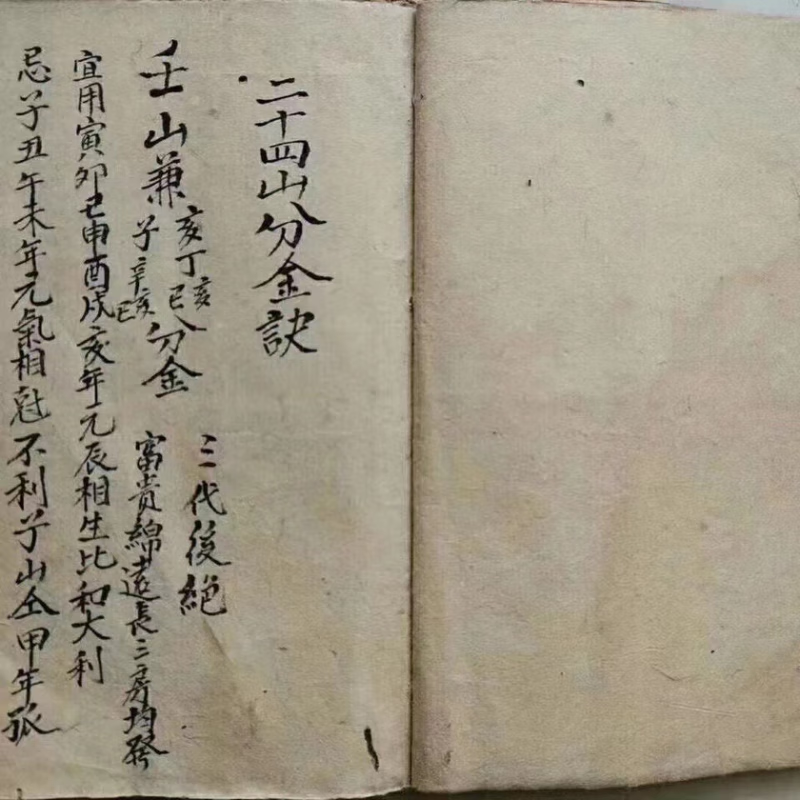 二十四山分金訣
壬山兼
亥丁亥巳
子辛亥巳
分金
三代後絕
富貴綿遠長三房均發
宜用寅卯巳申酉戌亥年元辰相生比和大利
忌子丑午未年元氣相尅不利子山仝甲年孤